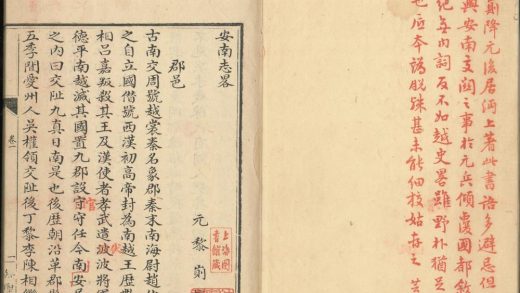 則降元後居漢上著此書語多避忌但
與安南交關之事於元兵傾覆國都敘
紀每內詞反不如越史畧雖野朴猶足
也原本譌脫疎甚未能細校姑存之
安南志畧
元 黎崱
郡邑
古南交周號越裳秦名象郡秦末南海尉趙
之自立國僭號西漢初高帝封為南越王歷
相呂嘉叛殺其王及漢使者孝武遣波波將
德平南越滅其國置九郡設守守任今南安
官
之內曰交趾九真日南是也後歷朝沿革郡
五季間愛州人吳權領交趾後丁黎李陳相繼
上海圖書館藏
卷一